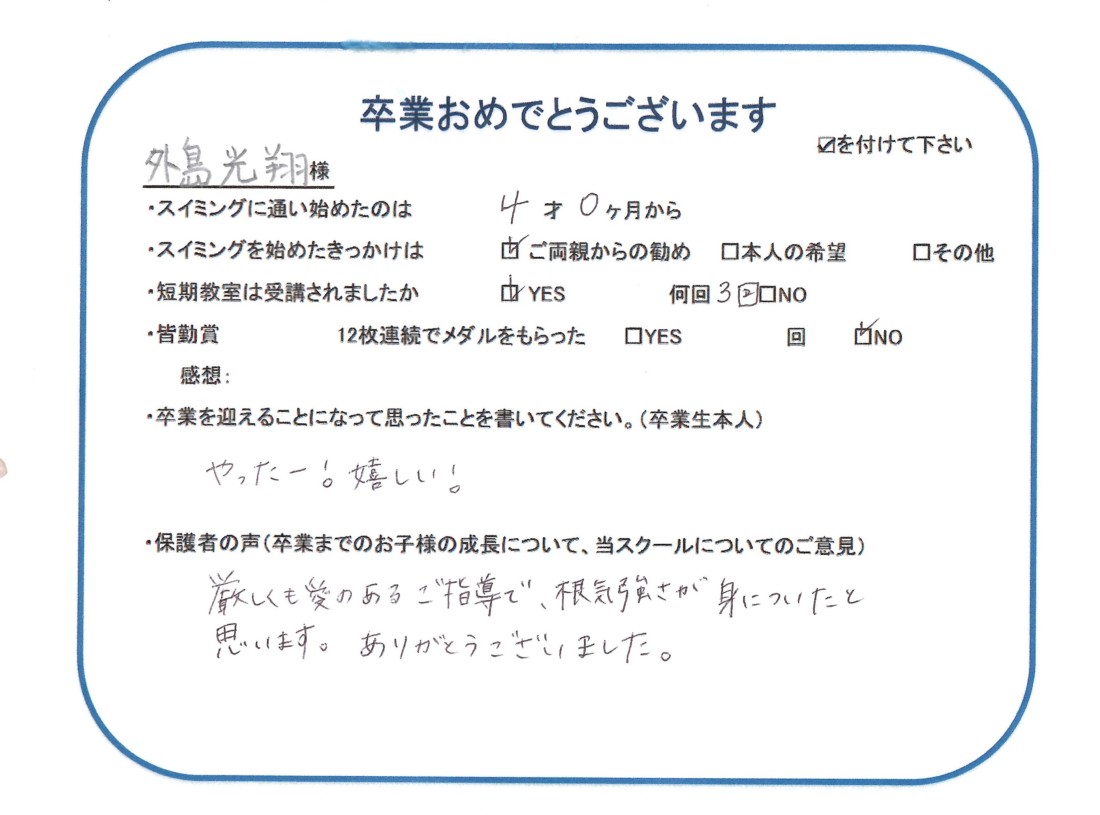 卒業おめでとうございます
☑を付けて下さい
外島光翔様
・スイミングに通い始めたのは 4才0ヶ月から
・スイミングを始めたきっかけは ☑ご両親からの勧め □本人の希望 □その他
・短期教室は受講されましたか ☑YES 何回3回□NO
・皆勤賞 12枚連続でメダルをもらった □YES 回 ☑NO
感想：
・卒業を迎えることになって思ったことを書いてください。（卒業生本人）
やったー！嬉しい！
・保護者の声（卒業までのお子様の成長について、当スクールについてのご意見）
厳しくも愛のあるご指導で、根気強さが身についたと
思います。ありがとうございました。